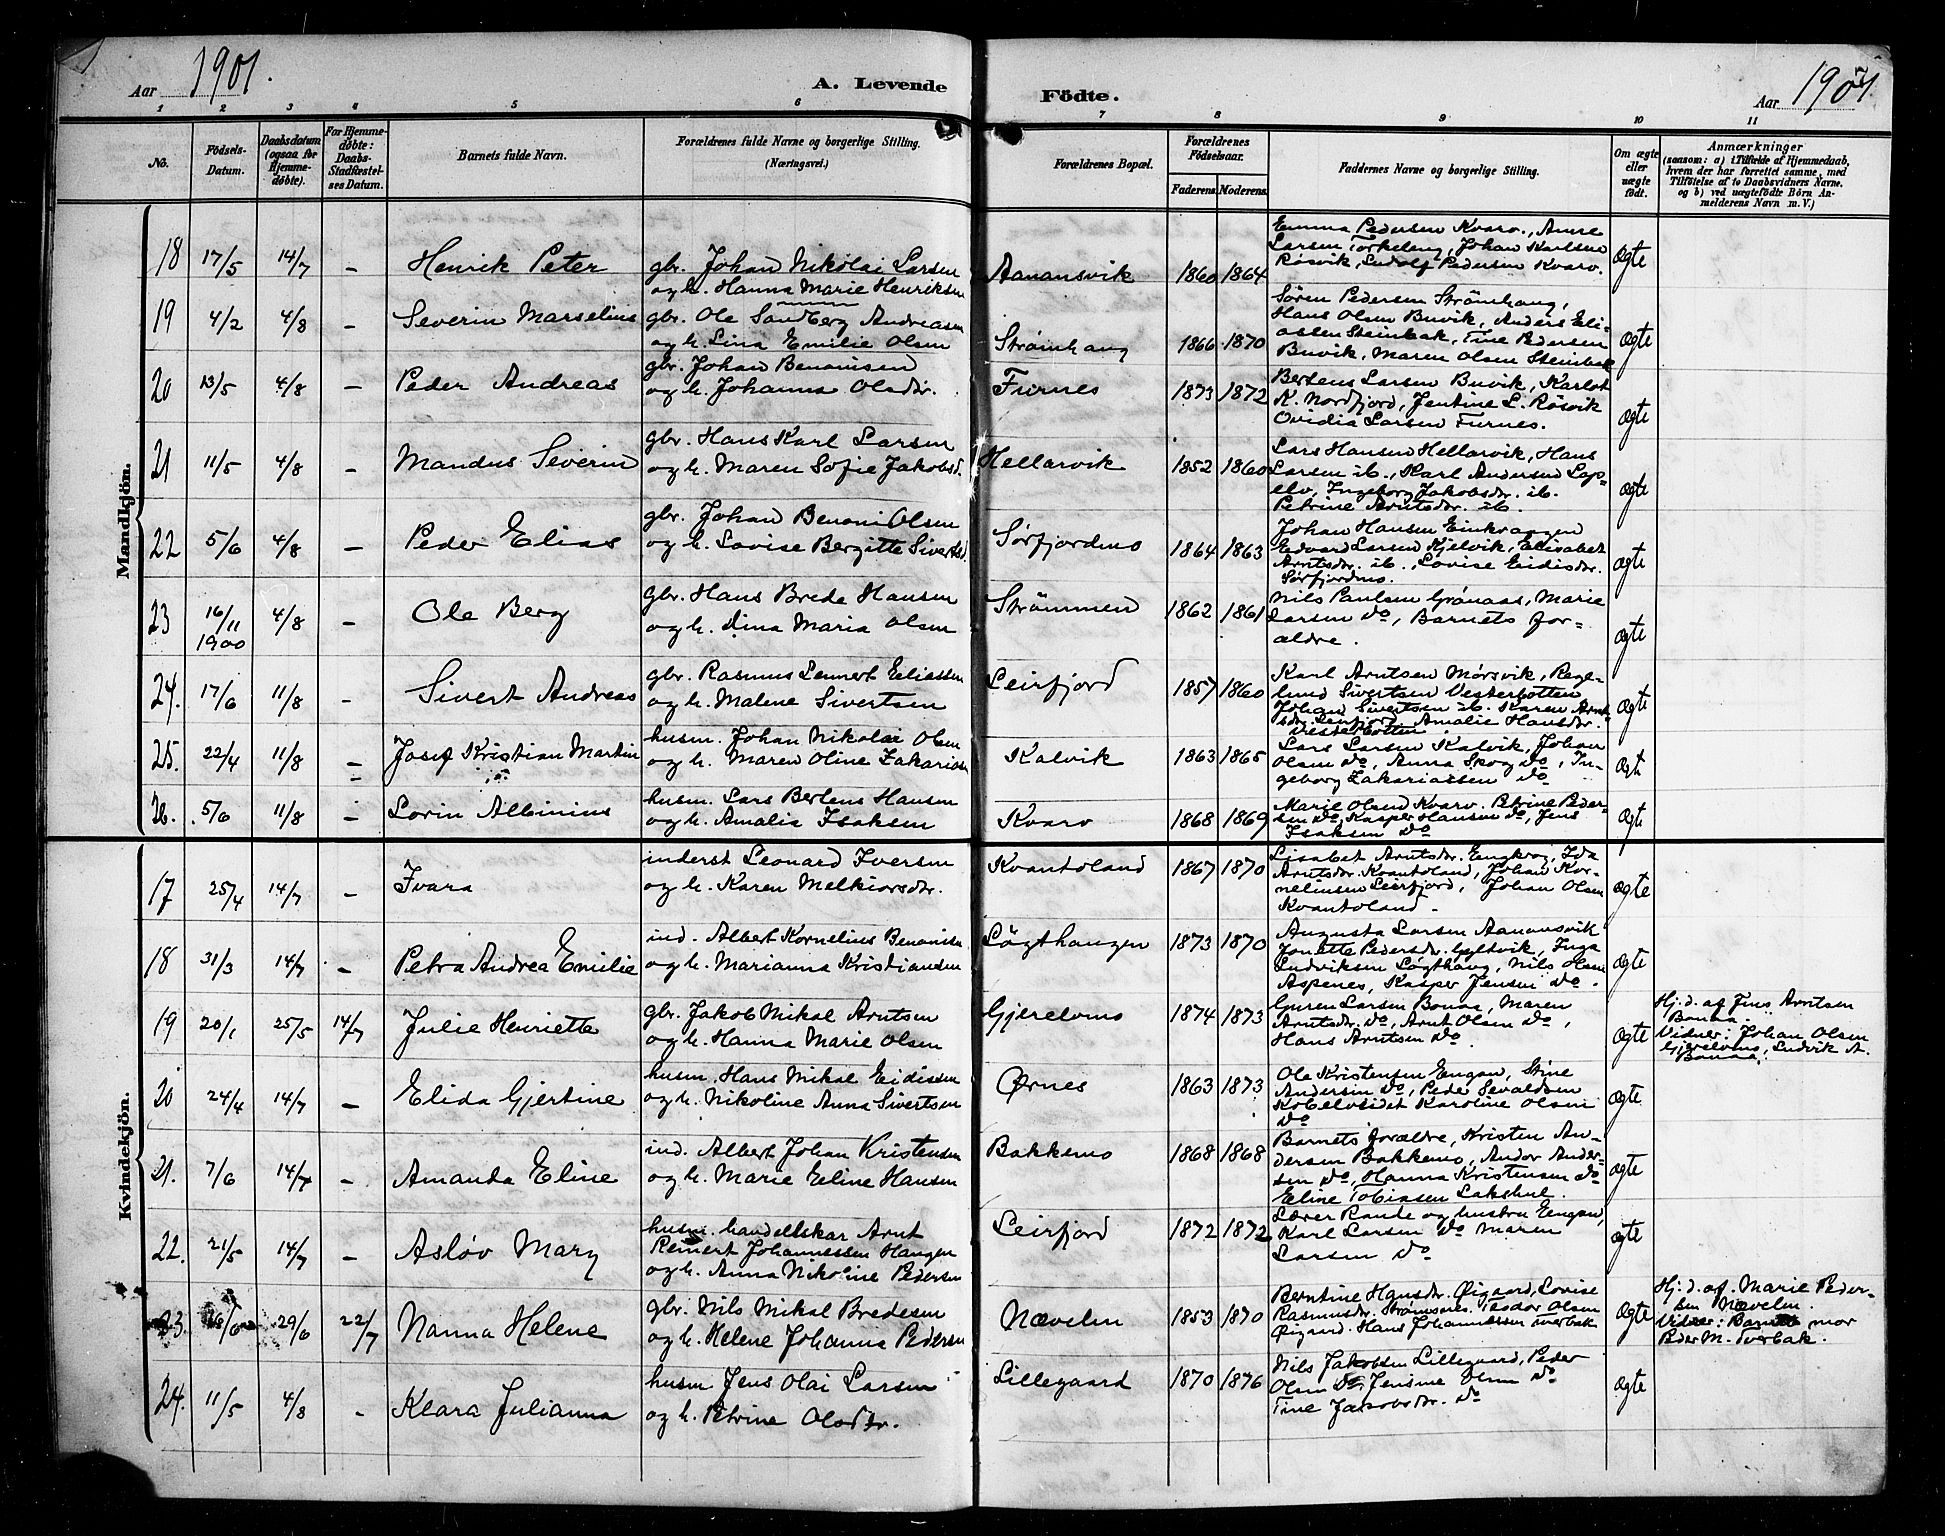 Aar 1901.
A. Levende
Födte.
Aar 1901.
1 2 3 4 5 6 7 8 9 10 11
No.
Födsels-Datum.
Daabsdatum (ogsaa for Hjemme-døbte).
For Hjemme-døbte: Daabs-Stadfæstel-ses Datum.
Barnets fulde Navn.
Forældrenes fulde Navne og borgerlige Stilling.
(Næringsvei.)
Forældrenes Bopæl.
Forældrenes Födselsaar.
Faderens. Moderens.
Faddernes Navne og borgerlige Stilling.
Om ægte eller uægte födt.
Anmærkninger
(saasom: a) i Tilfælde af Hjemmedaab,
hvem der har forrettet samme, med
Tilföielse af to Daabsvidners Navne.
og b) ved uægtefödte Börn An-
melderens Navn m. V.)
Mandkjön.
18 17/5 14/7 – Henrik Peter
gbr. Johan Nikolai Larsen
og h. Hanna Marie Henriksen
Aanansvik 1860 1864
Emma Pedersen Kvarv., Anne
Larsen Torkeleng, Johan Karlsen
Røsvik, Ludolf Pedersen Kvarv.
Ægte
19 4/2 4/8 – Severin Marselius
gbr. Ole Sandberg Andreasen
og h. Lina Emilie Olsen
Strömhaug 1866 1870
Sören Pedersen Strömhaug,
Hans Olsen Buvik, Anders Eli-
assen Steinbak, Tine Pedersen
Buvik, Maren Olsen Steinbak
Ægte
20 13/5 4/8 – Peder Andreas
gbr. Johan Benonisen
og h. Johanna Olsdr.
Furnes 1873 1872
Bertens Larsen Buvik, Karlot
K. Nordfjord, Jentine L. Røsvik
Ovidia Larsen Furnes.
Ægte
21 11/5 4/8 – Mandus Severin
gbr. Hans Karl Larsen
og h. Maren Sofie Jakobsd.
Hellarvik 1852 1860
Lars Hansen Hellarvik, Hans
Larsen ib., Karl Andersen Lap-
elv, Ingeborg Jakobsdr. ib.
Petrine Arntsdr. ib.
Ægte
22 5/6 4/8 – Peder Elias
gbr. Johan Benoni Olsen
og h. Lovise Bergitte Sivertsd.
Sørfjordmo 1864 1863
Johan Hansen Einkraagen
Edvard Larsen Kjelvik, Elisabet
Arntsdr. ib., Lovise Eidisdr.
Sørfjordmo.
Ægte
23 16/11 1900 4/8 – Ole Berg
gbr. Hans Brede Hansen
og h. Dina Maria Olsen
Strömmen 1862 1861
Nils Paulsen Grönaas, Marie
Larsen do, Barnets for-
ældre.
Ægte
24. 17/6 11/8 – Sivert Andreas
gbr. Rasmus Lennert Eliassen
og h. Malene Sivertsen
Leirfjord 1857 1860
Karl Arntsen Mørsvik, Rege-
lund Sivertsen Vesterbotten
Johan Sivertsen ib. Karen Arnt-
sdr. Leirfjord, Amalie Hansdr.
Vesterbotten.
Ægte
25. 22/4 11/8 – Josef Kristian Martin
husm. Johan Nikolai Olsen
og h. Maren Oline Zakariasen
Kalvik 1863 1865
Lars Larsen Kalvik, Johan
Olsen do, Anna Skog do, In-
geborg Zakariassen do
Ægt
26. 5/6 11/8 – Lorin Albinius
husm. Lars Bertens Hansen
og h. Amalia Isaksen
Kvarv 1868 1869
Marie Olsen Kvarv. Petrine Peder-
sen do, Kasper Hansen do, Jens
Isaksen do
Ægte
Kvindekjön.
17 25/4 14/7 – Ivara
inderst Leonard Iversen
og h. Karen Melkiorsdr.
Kvantoland 1867 1870
Lisabet Arntsdr. Engkrog, Ida
Arntsdr. Kvantoland, Johan Kor-
neliusen Leirfjord, Johan Olsen
Kvantoland.
Ægte
18 31/3 14/7 – Petra Andrea Emilie
ind. Albert Kornelius Benonisen
og h. Marianna Kristiansen
Løgthaugen 1873 1870
Augusta Larsen Aanansvik
Jonette Pedersdr. Gyltvik, Inga
Ludviksen Løgthaug, Nils Olsen
Aspenes, Kasper Jensen do.
Ægte
19 20/1 25/5 14/7 Julie Henriette
gbr. Jakob Mikal Arntsen
og h. Hanna Marie Olsen
Gjerelvmo 1874 1873
Guren Larsen Bonaa, Maren
Arntsdr. do, Arnt Olsen do,
Hans Arntsen do.
Ægte
Hj. d. af Jens Arntsen
Bonaa.
Vidner: Johan Olsen
Gjerelvmo, Ludvik A.
Bonaa.
20 24/4 14/7 – Elida Gjertine
husm. Hans Mikal Eidissen
og h. Nikoline Anna Sivertsen
Ørnes 1863 1873
Ole Kristensen Engan, Stine
Andersen do, Peder Sevaldsen
Kobelvsidet Karoline Olsen
do
Ægte
21. 7/6 14/7 – Amanda Eline
ind. Albert Johan Kristensen
og h. Marie Eline Hansen
Bakkemo 1868 1868
Barnets forældre, Kristen An-
dersen Bakkemo, Andor Ander-
sen do, Hanna Kristensen do
Eline Tobiasen Lakshul.
Ægte
22. 21/5 14/7 – Asløv Mary
husm. handelskar Arnt
Reinert Johannessen Haugen
og h. Anna Nikoline Pedersen
Leirfjord 1872 1872
Lærer Rande og hustru Engan,
Karl Larsen do Maren
Larsen do
Ægte
23. 16/6 29/6 22/7 Nanna Helene
gbr. Nils Mikal Bredesen
og h. Helene Johanna Pedersen
Nævelen 1853 1870
Berntine Hansdr. Øigaard, Lovise
Rasmusdr. Strömsnes, Teodor Olsen
Øigaard. Hans Johannessen Tverbak
Ægte
Hj. d. af. Marie Peder-
sen Nævelen.
Vidner: Barnets mor
Peder M. Tverbak.
24. 11/5 4/8 – Klara Julianna
husm Jens Olai Larsen
og h. Petrine Olsdr.
Lillegaard 1870 1876
Nils Jakobsen Lillegaard, Peder
Olsen do, Jensine Olsen do
Tine Jakobsdr. do
Ægte